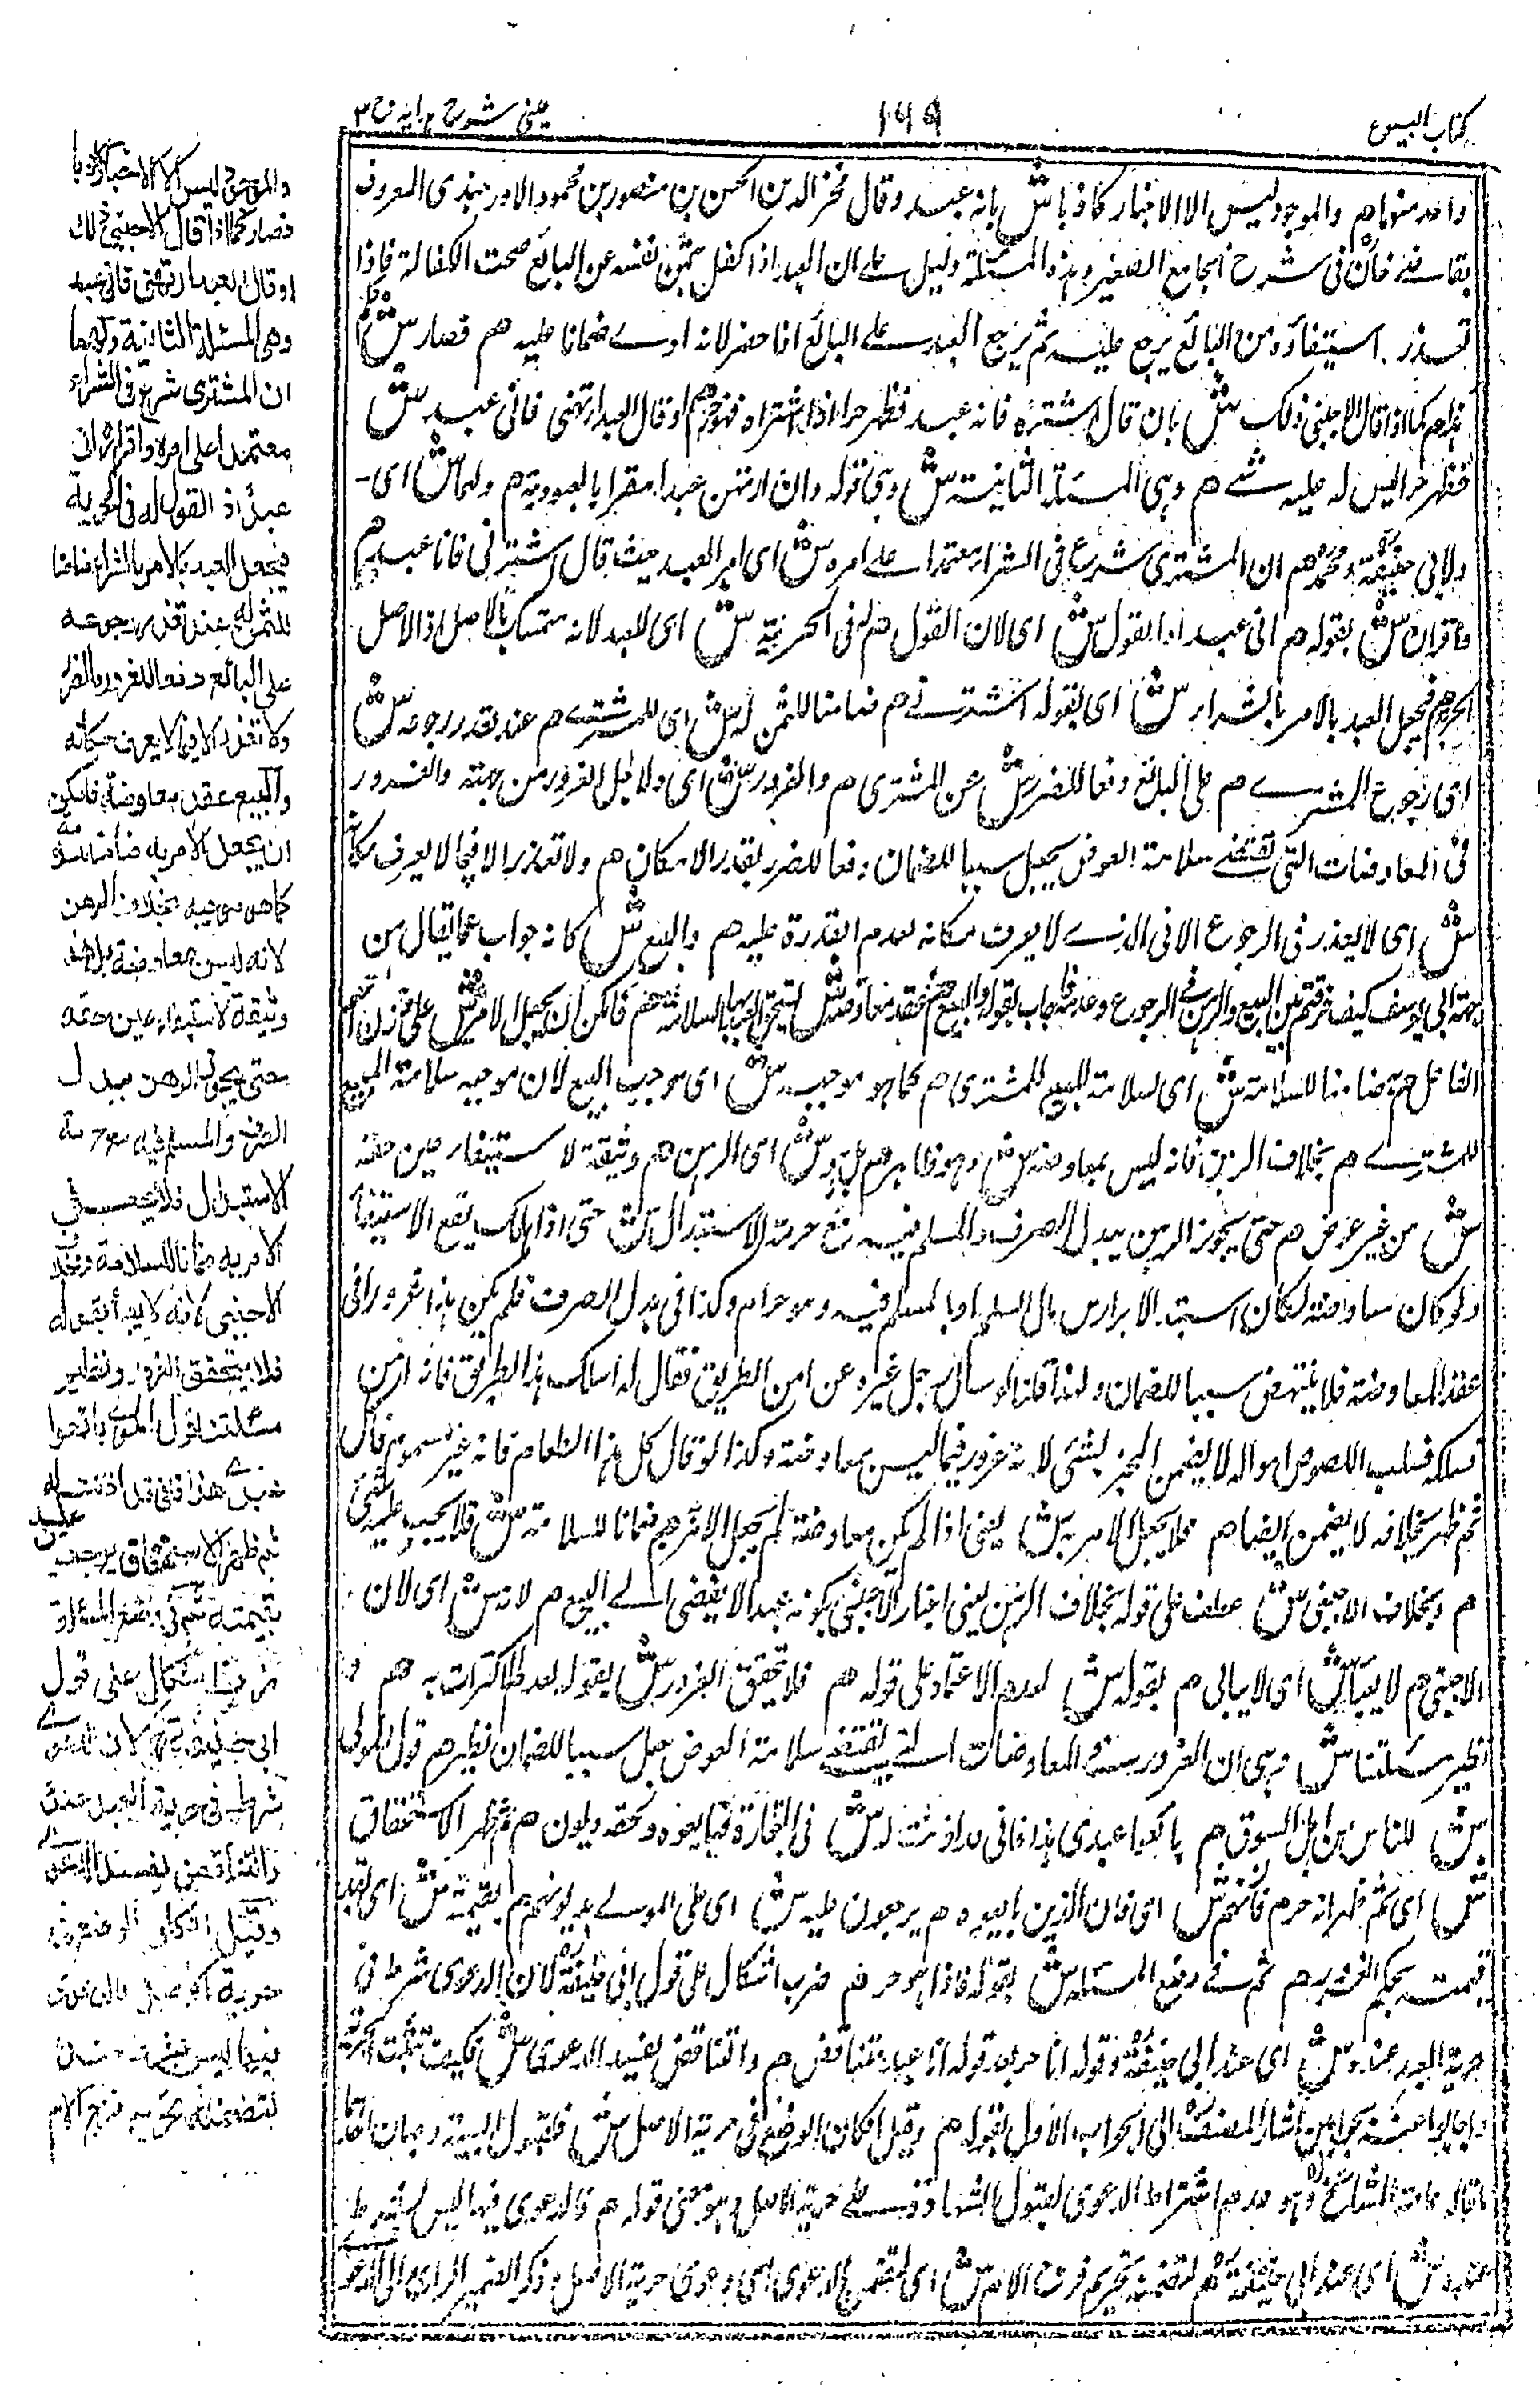 كتاب البيوع
١٩٩
عينى شرح هدايه ج ٣
واحد منهما هم والموجود ليس الا الاخبار كاذبا ش بانه عبد وقال فخر الدين الحسن بن منصور بن محمود الاوزجندى المعروف
بقاضى خان فى شرح الجامع الصغير وهذه المسئلة دليل على ان العبد اذا كفل بثمن نفسه عن البائع صحت الكفالة فاذا
تعذر استيفاؤه من البائع يرجع عليه ثم يرجع العبد على البائع اذا حضر لانه ادى ضمانا عليه هم فصار ش
هذا هم كما اذا قال الاجنبى ذلك ش بان قال اشتره فانه عبد فظهر حرا اذا اشتراه فهو حر هم او قال العبد ارتهنى فانى عبد ش
فظهر حرا ليس له عليه شئ هم وهى المسئلة الثانية ش وهى قوله وان ارتهن عبدا مقرا بالعبودية هم ولهما ش اى
ولابى حنيفة ومحمد هم ان المشترى شرع فى الشراء معتمدا على امره ش اى امر العبد حيث قال اشترنى فانا عبد هم
واقراره ش بقوله هم انى عبد اذ القول ش اى لان القول هم له فى الحرية ش اى للعبد لانه متمسك بالاصل اذ الاصل
الحرية هم فيجعل العبد بالامر بالشراء ش اى بقوله اشترنى هم ضامنا للثمن له ش اى للمشترى هم عند تعذر رجوعه ش
اى رجوع المشترى هم على البائع دفعا للضرر ش عن المشترى هم والغرور ش اى ولاجل الغرور من جهته والغرور
فى المعاوضات التى تقتضى سلامة العوض يجعل سببا للضمان دفعا للضرر بقدر الامكان هم ولا تعذر الا فيما لا يعرف مكانه
ش اى لا يعذر فى الرجوع الا فى الذى لا يعرف مكانه لعدم القدرة عليه هم والبيع ش كانه جواب عما يقال من
جهة ابى يوسف كيف فرقتم بين البيع والرهن فى الرجوع وعدمه فاجاب بقوله والبيع هم عقد معاوضة ش
هم فامكن ان يجعل الامر ش
هم ضامنا للسلامة ش اى لسلامة المبيع للمشترى هم كما هو موجبه ش اى موجب البيع لان موجبه سلامة المبيع
للمشترى هم بخلاف الرهن فانه ليس بمعاوضة ش وهو ظاهر هم بل هو ش اى الرهن هم وثيقة لاستيفاء عين حقه
ش من غير عوض هم حتى يجوز الرهن ببدل الصرف والمسلم فيه مع حرمة الاستبدال ش حتى اذا هلك يقع الاستيفاء
ولو كان معاوضة لكان استبدالا براس مال السلم او بالمسلم فيه وهو حرام وكذا فى بدل الصرف فلم يكن هذا غرورا فى
عقد المعاوضة فلا ينتهض سببا للضمان ولهذا قلنا لو سال رجل غيره عن امن الطريق فقال له اسلك هذا الطريق فانه امن
فسلكه فسلب اللصوص امواله لا يضمن المخبر لشئ لانه غرور فيما ليس بمعاوضة وكذا لو قال كل هذا الطعام فانه غير مسموم فاكل
ثم ظهر بخلافه لا يضمن ايضا هم فلا يجعل الامر به ش يعنى اذا لم يكن معاوضة لم يجعل الامر به هم ضمانا للسلامة ش فلا يجب عليه شئ
هم وبخلاف الاجنبى ش عطف على قوله بخلاف الرهن يعنى اخبار الاجنبى بكونه عبدا لا يفضى الى البيع هم لانه ش اى لان
الاجنبى هم لا يعبأ ش اى لا يبالى هم بقوله ش لعدم الاعتماد على قوله هم فلا يتحقق الغرور ش بقوله لعدم الاكتراث به هم و
نظير مسئلتنا ش وهى ان الغرور فى المعاوضات التى تقتضى سلامة العوض جعل سببا للضمان نظير هم قول المولى
ش للناس من اهل السوق هم بايعوا عبدى هذا فانى قد اذنت له ش فى التجارة فبايعوه ولحقه ديون هم ثم ظهر الاستحقاق
ش اى ثم ظهر انه حر هم فانهم ش اى فان الذين بايعوه هم يرجعون عليه ش اى على المولى بديونهم هم بقيمته ش اى بقدر
قيمته بحكم الغرور هم ثم فى وضع المسئلة ش بقوله فاذا هو حر هم ضرب اشكال على قول ابى حنيفة لان الدعوى شرط فى
حرية العبد عنده ش اى عند ابى حنيفة وقوله انا حر بعد قوله انا عبد تناقض هم والتناقض يفسد الدعوى ش فكيف تثبت الحرية
واجابوا عنه بجوابين اشار المصنف الى الجواب الاول بقوله هم وقيل ان كان الوضع فى حرية الاصل ش فلقبول البينة
ما قاله عامة المشايخ وهو عدم اشتراط الدعوى لقبول الشهادة على حرية الاصل وهو معنى قوله هم فالدعوى فيها ليس بشرط
عنده ش اى عند ابى حنيفة هم لتضمنه تحريم فرج الام ش اى لتضمن الدعوى اى دعوى حرية الاصل وذكر الضمير الراجع الى الدعوى
والموجود ليس الا الاخبار كاذبا
فصار كما اذا قال الاجنبى ذلك
او قال العبد ارتهنى فانى عبد
وهى المسئلة الثانية ولهما
ان المشترى شرع فى الشراء
معتمدا على امره واقراره انى
عبد اذ القول له فى الحرية
فيجعل العبد بالامر بالشراء ضامنا
للثمن له عند تعذر رجوعه
على البائع دفعا للغرور والضرر
ولا تعذر الا فيما لا يعرف مكانه
والبيع عقد معاوضة فامكن
ان يجعل الامر به ضامنا للسلامة
كما هو موجبه بخلاف الرهن
لانه ليس بمعاوضة بل هو
وثيقة لاستيفاء عين حقه
حتى يجوز الرهن ببدل
الصرف والمسلم فيه مع حرمة
الاستبدال فلا يجعل
الامر به ضمانا للسلامة وبخلاف
الاجنبى لانه لا يعبأ بقوله
فلا يتحقق الغرور ونظير
مسئلتنا قول المولى بايعوا
عبدى هذا فانى قد اذنت له
ثم ظهر الاستحقاق يرجعون عليه
بقيمته ثم فى وضع المسئلة
ضرب اشكال على قول
ابى حنيفة لان الدعوى
شرط فى حرية العبد عنده
والتناقض يفسد الدعوى
وقيل ان كان الوضع فى
حرية الاصل فالدعوى
فيها ليس بشرط عنده
لتضمنه تحريم فرج الام